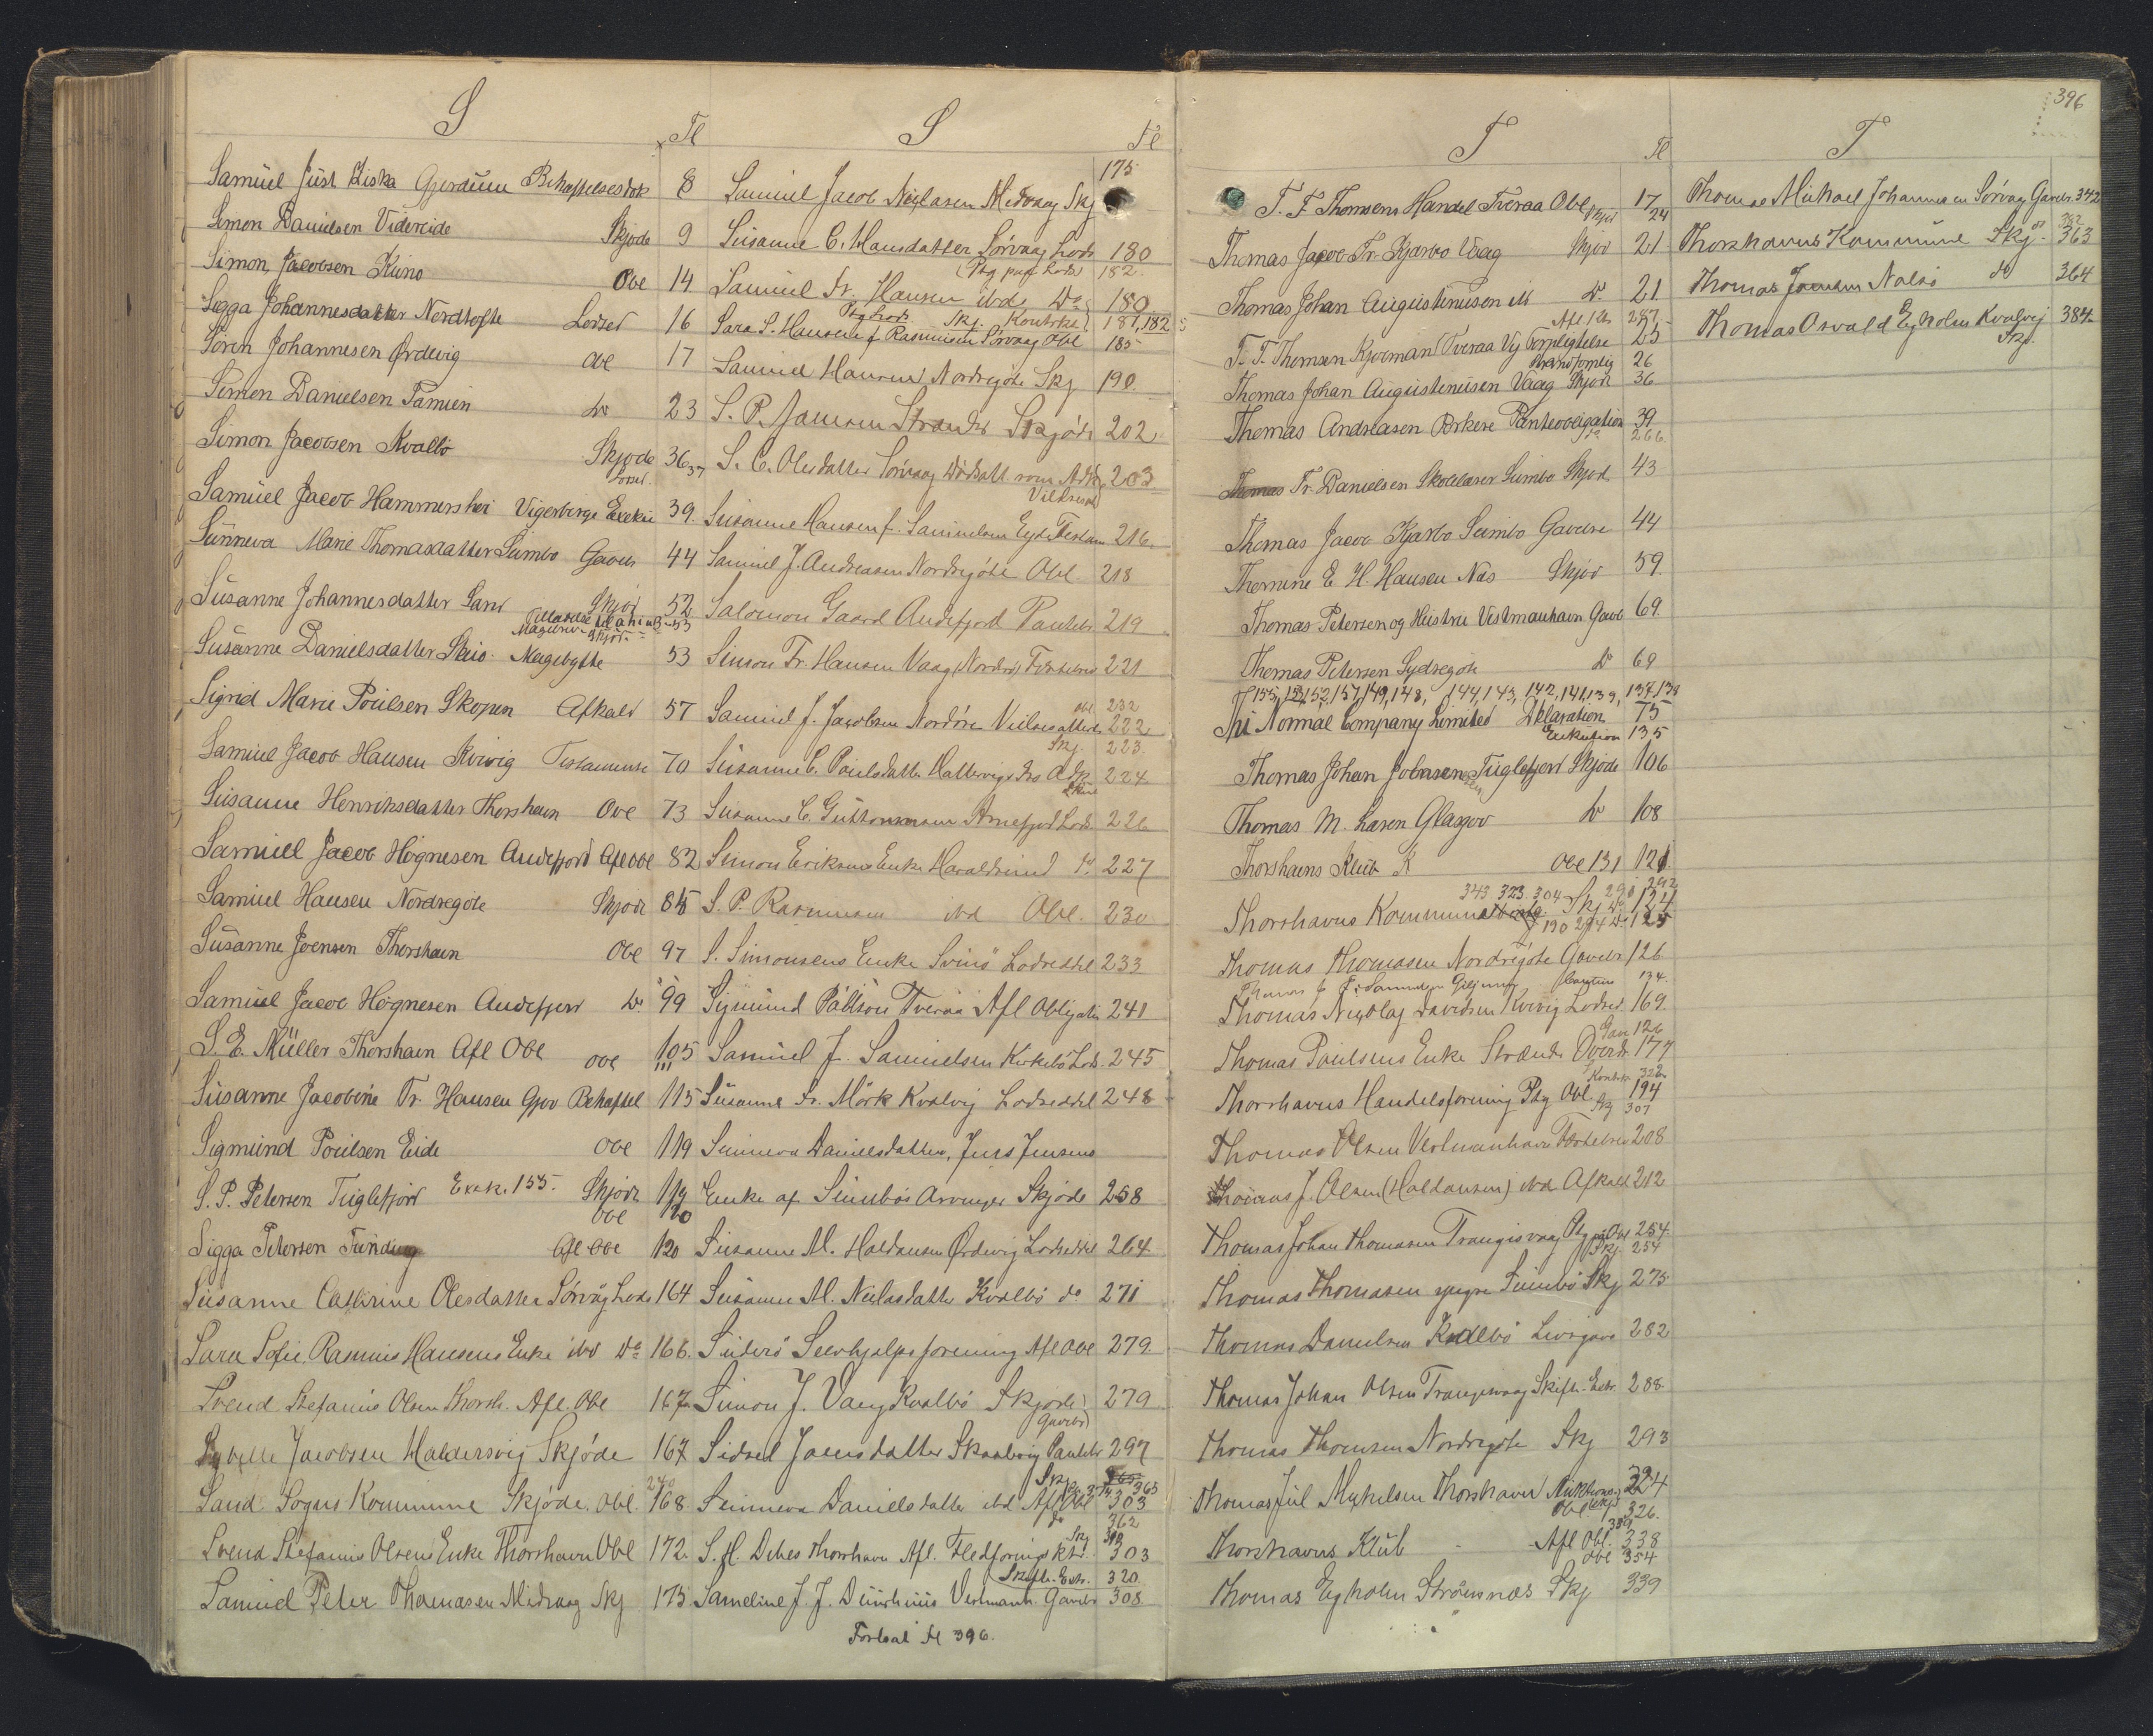 S
Fl
Samuel Just Ziska Gjerduen Behæftelsesdok 8
Simon Danielsen Videreide Skjøde 9
Simon Jacobsen Kuno Obl 14
Sigga Johannesdatter Nordtofte Lodsed 16
Sören Johannesen Ördevig Obl 17
Simon Danielsen Famien do 23
Simon Jacobsen Kvalbö Skjøde 36 37
Lodsed.
Samuel Jacob Hammershei Vigerbirge Exeku 39.
Sunneva Marie Thomasdatter Sumbo Gaveb 44
Susanne Johannesdatter Sand Skjøde 52
53
Susanne Danielsdatter Skuö Magebytte 53
Sigrid Marie Poulsen Skopen Afkald 57
Samuel Jacob Hansen Kvivig Testamente 70
Susanne Henriksdatter Thorshavn Obl 73
Samuel Jacob Högnesen Andefjord Afl Obl 82
Samuel Hansen Nordregöte Skjøde 85
Susanne Joensen Thorshavn Obl 97
Samuel Jacob Högnesen Andefjord do 99
S. E. Müller Thorshavn Afl Obl Obl 105
111
Susanne Jacobine Fr. Hansen Gjov Behæftel 115
Sigmund Poulsen Eide Obl 119
S. P. Petersen Fuglefjord Exek. 155. Skjøde 119
Obl 120
Sigga Petersen Funding Afl Obl 120
Susanne Cathrine Olesdatter Sörvåg Lods 164
Sara Sofie Rasmus Hansens Enke ibd do 166.
Svend Stefanus Olsen Thorsh. Afl. Obl 167
Sybille Jacobsen Haldersvig Skjøde 167
Sand Sogns Kommune Skjøde. Obl. 240 168
Svend Stefanus Olsens Enke Thorshavn Obl 172.
Samuel Peter Thomasen Midvaag Skj 175
S
Fl
175
Samuel Jacob Niclasen Midvaag Skj
Susanne C. Hansdatter Sörvaag Lods 180
(Ptg paa Lods) 182.
Samuel Fr. Hansen ibd. do 180
Ptg Lods Skj. Kontrkt. 187, 182
Sara S. Hansen f. Rasmusen Sörvaag Obl 185
Samuel Hansen Nordregöte Skj 190.
S. P. Jansen Strender Skjöde 202
S. C. Olesdatter Sörvaag 203
Susanne Hansen f. Samuelsen Eyde Testam 216.
Samuel J. Andreasen Nordregöte Obl. 218
Salomon Gaard Andefjord Panteb. 219
Simon Fr. Hansen Vaag (Nordre) Festebrev 221
Obl. 232
Samuel J. Jacobsen Nordöre Vielsesattest 222
Skj. 223.
Susanne C. Poulsdatter Hattervig Adk 224
Susanne C. Guttormsen Arnefjord Lods. 226
Simon Eriksens Enke Haraldsund do 227
S. P. Rasmussen ibd Obl. 230
S. Simonsens Enke Svinö Lodseddel 233
Sigmund Pállson Tveraa Afl Obligatio 241
Samuel J. Samuelsen Kirkebö Lods. 245
Susanne Fr. Mörk Kvalvig Lodseddel 248
Sunneva Danielsdatter, Jens Jensens
Enke af Sumbös Arvinger Skjøde 258
Susanne M. Haldansen Ördevig Lodseddel 264
Susanne M. Niclasdatter Kvalbö do 271
Suderö Selvhjælpsforening Afl Obl 279.
Simon J. Vang Kvalbö Skjøde 279
Gavebr)
Sidsel Joensdatter Skaalevig Panteb. 297
Skj. 365
Sunneva Danielsdatter ibd Afl Obl 303
do 362
S. H. Debes Thorshavn Afl. Fledförings ktr. 303
Skifte. Extr. 320.
Sameline J. J. Duruhuus Vestmanh. Gavebr 308
Fortsat Fl 396.
396
T
Fl
T. F. Thomsens Handel Tveraa Obl 17
Skjöd 24
Thomas Jacob Fr. Kjærbo Vaag Skjöd 21
Thomas Johan Augustinusen ib do 21.
Afl 287.
T. F. Thomsen Kjøbmand Tveraa Vej Forpligtelse 25
26
Thomas Johan Augustinusen Vaag Skjöd 36
Thomas Andreasen Porkere Panteobligation 39
do 266.
Thomas Fr. Danielsen Skolelærer Sumbo Skjöd 43
Thomas Jacob Kjærbo Sumbo Gavebr 44
Thomine E. H. Hansen Næs Skjöd 59.
Thomas Petersen og Hustru Vestmanhavn Gaveb 69.
Thomas Petersen Sydregöte do 69
155, 153, 152, 157, 149, 148, 144, 143, 142, 141, 139, 137, 138
The Normal Company Limited Deklaration 75
Exekution 135
Thomas Johan Johnsen Fuglefjord Skjøde 106
Thomas M. Laren Glasgov do 108
Thorshavns Klub K Obl 131 121
343 323. 304 Skj 290 292
Thorshavns Kommune 124
190 294 do 125
Thomas Thomasen Nordregöte Gavebr 126
134.
Thomas Niclas Davidsen Kvivig Lodsed 169.
Gave 126
Thomas Poulsens Enke Strænder Overdr 177
Kontrkt. 322
Thorshavns Handelsforening Ptg Obl. 194
Skj 307
Thomas Olsen Vestmanhavn Festebrev 208
Thomas J. Olsen (Haldansen) ibd Afkald 212
Thomas Johan Thomasen Trangisvaag Ptg paa Obl 254.
Skj. 254
Thomas Thomasen yngre Sumbö Skj 275
Thomas Danielsen Kvalbö Livsgave 282
Thomas Johan Olsen Trangisvaag Skifte. Extr. 288
Thomas Thomsen Nordregöte Skj 293
Thomas Juul Mikkelsen Thorshavn 324
Obl 326.
339
Thorshavns Klub Afl Obl. 338
Obl 354
Thomas Egholm Strömnæs Skj 339
T
Thomas Michael Johannesen Sörvaag Gavebr. 342
362
Thorshavns Kommune Skj. 363
Thomas Joensen Nolsö do 364
Thomas Osvald Egholm Kvalvig 384
Skj.